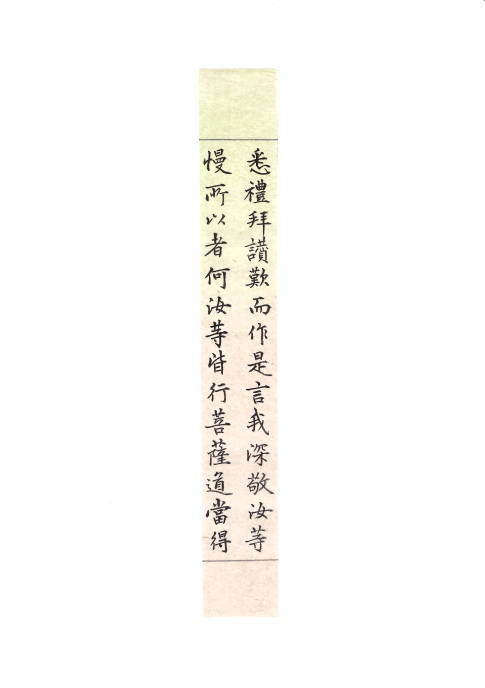 悉禮拜讃歎而作是言我深敬汝等
慢所以者何汝等皆行菩薩道當得